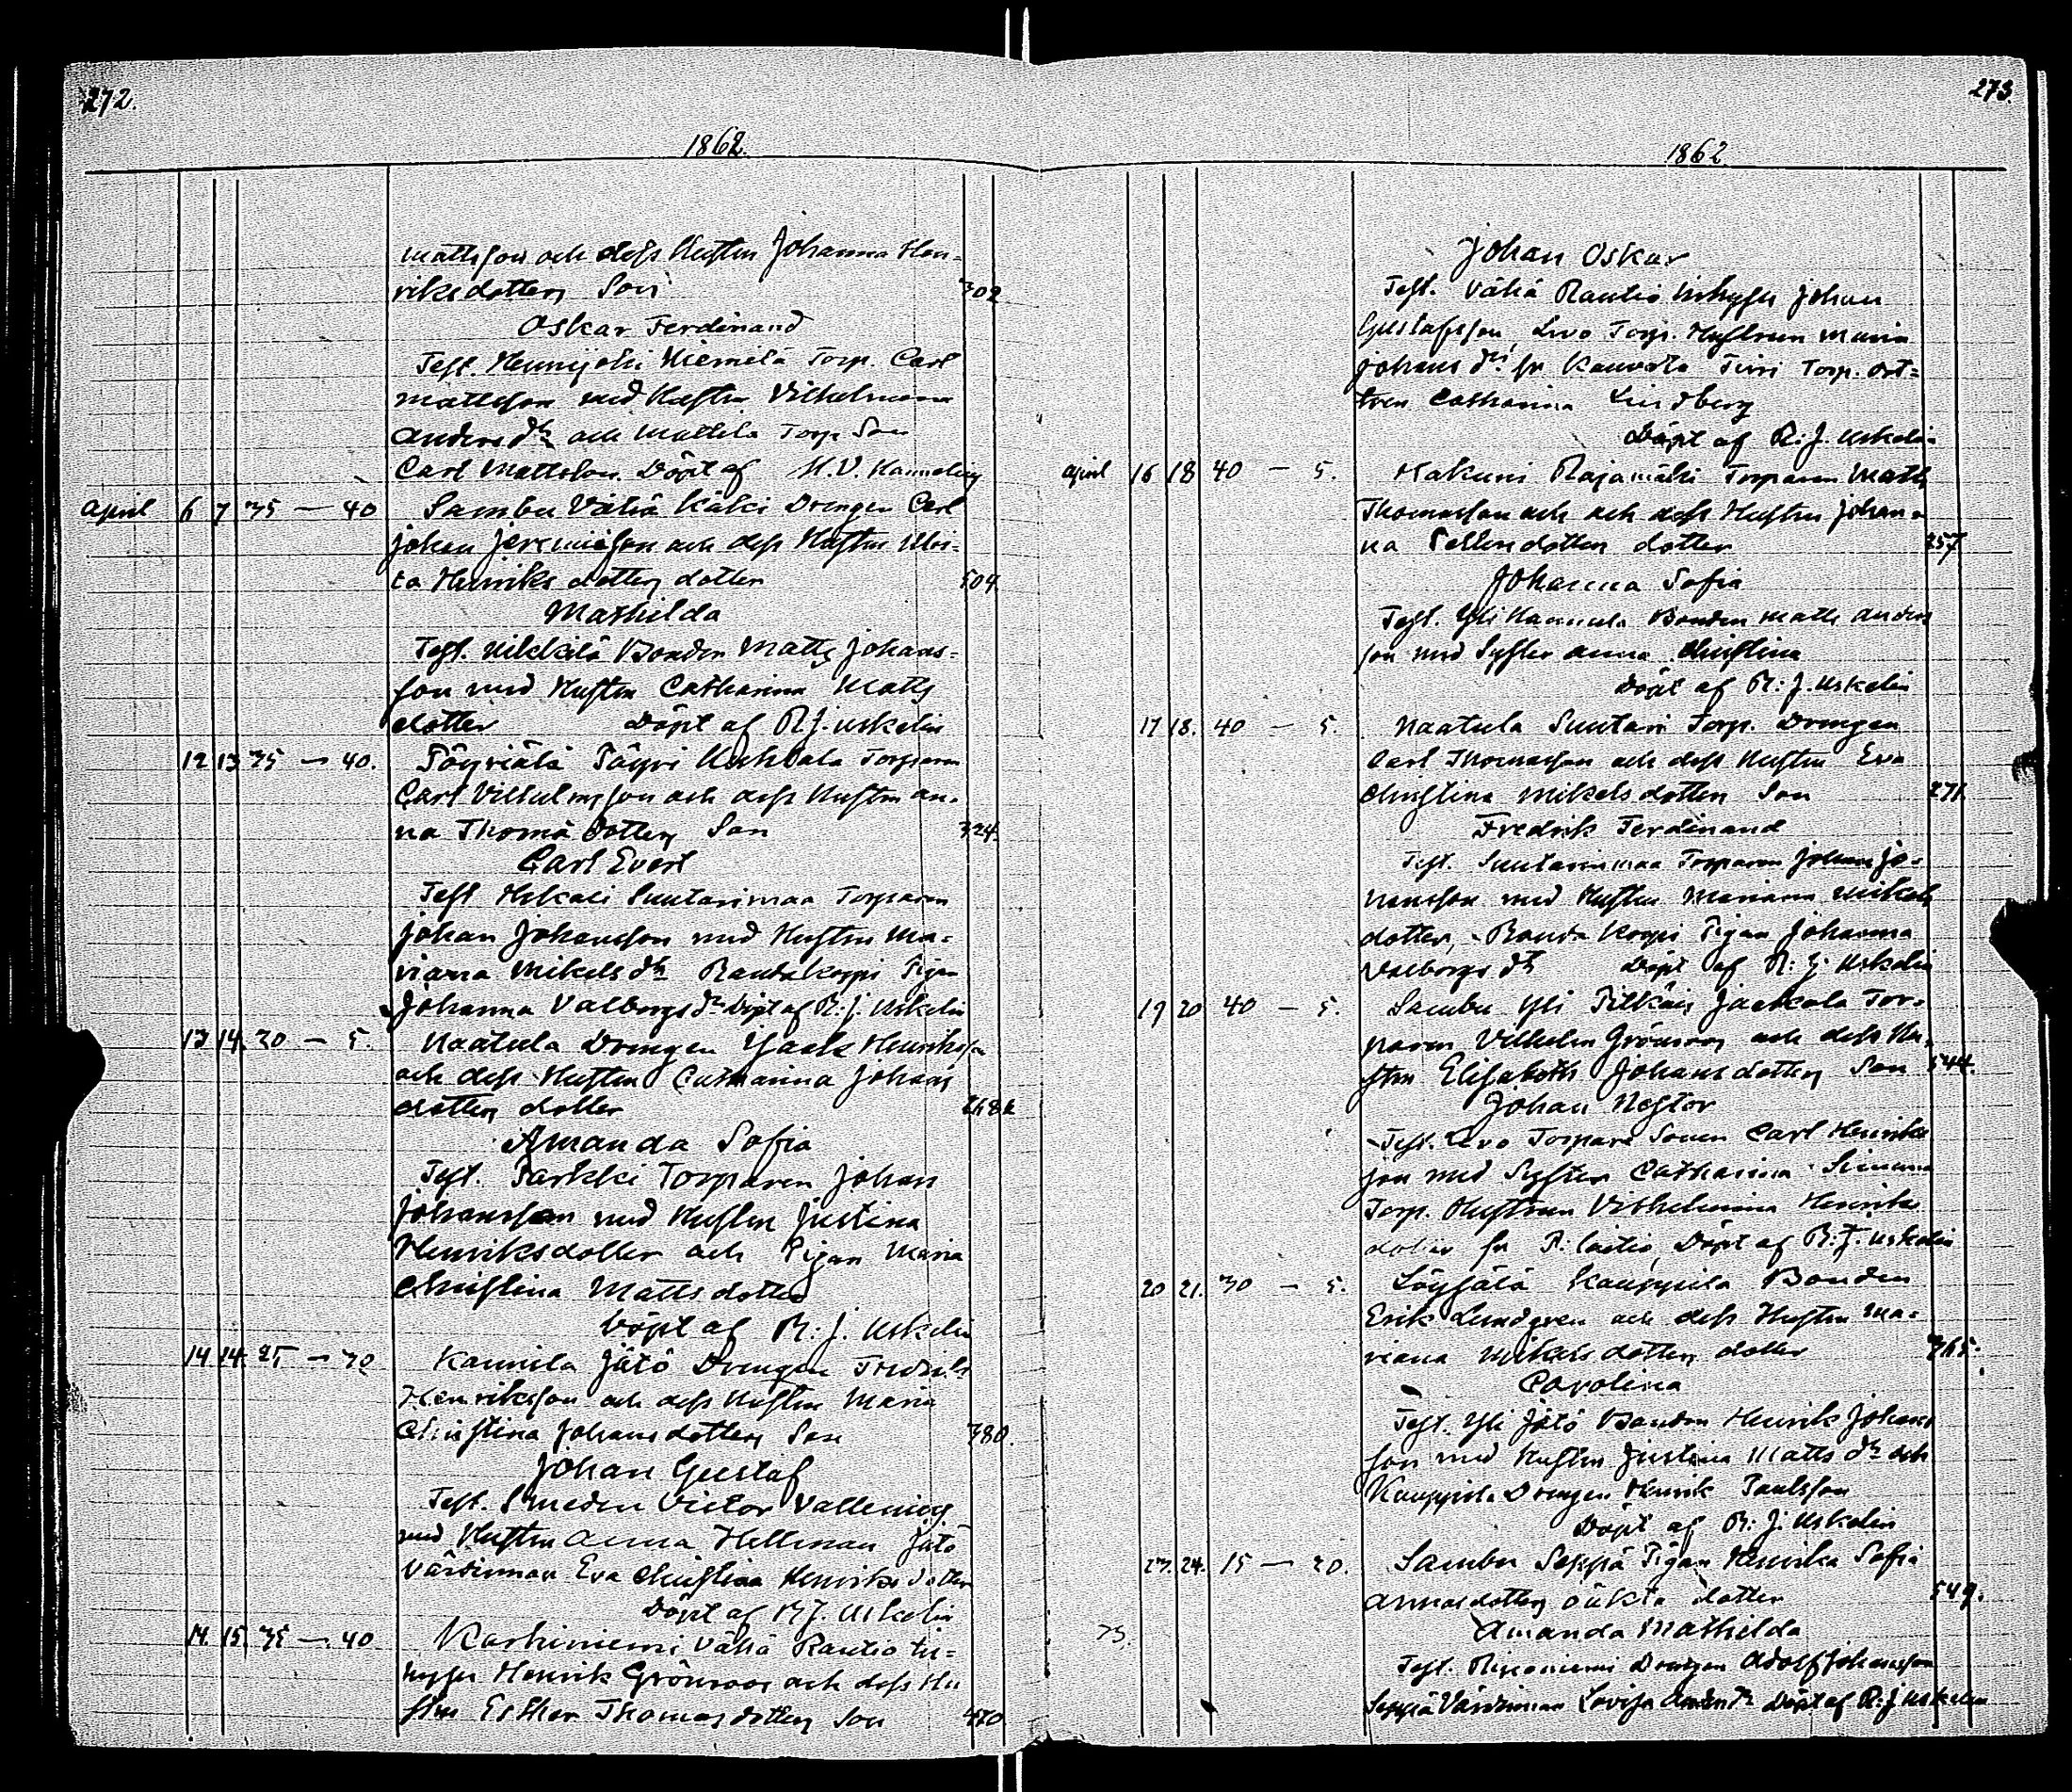 272.
1862.
Mattsson och dess Hustru Johanna Hen-
riksdotters Son 302
Oskar Ferdinand
Test. Hennijoki Niemelä Torp. Carl
Mattsson med Hustru Vilhelmina
Anders dr och Mattila Torp Son
Carl Mattsson. Döpt af H. V.
April 6 7 35 — 40 Sambu Vähä Käki Drengen Carl
Johan Jeremiasson och dess Hustru Ulri-
ca Henriks dotters dotter 504.
Mathilda
Test. Nikkilä Bonden Matts Johans-
son med Hustru Catharina Matts
dotter Döpt af R. J. Uskelin
12 13 35 — 40. Pöyriälä Päyri Uchtala Torparen
Carl Vilhelmsson och dess Hustru An-
na Thomä dotters Son 324.
Carl Evert
Test Suutarimaa Torparen
Johan Johansson med Hustru Ma-
riana Mikels dr Rautakorpi Pigan
Johanna Valborgs dr Döpt af R: J. Uskelin
13 14. 30 — 5. Naatula Drengen Isaak Henriksson
och dess Hustru Catharina Johans
dotters dotter 268
Amanda Sofia
Test. Parkki Torparen Johan
Johansson med Hustru Justina
Henriksdotter och Pigan Maria
Christina Matts dotter
Döpt af R: J. Uskelin
14 14. 25 — 30 Kaunila Jätö Drengen Fredrik
Henriksson och dess Hustru Maria
Christina Johans dotters Son 380.
Johan Gustaf
Test. Smeden Victor Vallenius
med Hustru Anna Hellman Jätö
Värdinnan Eva Christina Henriks dotter
Döpt af R J. Uskelin
14. 15. 35 — 40 Karhiniemi Vähä Rautio In-
hyses Henrik Grönroos och dess Hu
stru Esther Thomas dotters Son 470
273.
1862.
Johan Oskar
Test. Vähä Rautio Inhyses Johan
Gustafsson, Levo Torp. Hustrun Maria
Johans dr fr Kauvola Turi Torp. dot-
tren Catharina Lindberg
Döpt af R: J. Uskelin
April 16 18 40 — 5. Hakuni Rajamäki Torparen Matts
Thomasson och och dess Hustru Johan-
na dotters dotter 257
Johanna Sofia
Test. Yli Hannula Bonden Matts Anders
son med Syster Anna Christina
Döpt af R: J. Uskelin
17 18. 40 — 5. Naatula Suutari Torp. Drengen
Carl Thomasson och dess Hustru Eva
Christina Mikels dotters Son 271.
Fredrik Ferdinand
Test. Suutarinmaa Torparen Johan Jo-
hansson med Hustru Mariana Mikels
dotter, Rauta Korpi Pigan Johanna
Valborgs dr Döpt af R: J. Uskelin
19 20 40 — 5. Sambu Yli Pitkäis Jaakola Tor-
paren Vilhelm Grönroos och dess Hu-
stru Elisabeth Johans dotters Son 544.
Johan Nestor
Test. Levo Torpare Sonen Carl Henriks
son med Syster Catharina Simuna
Torp. Hustrun Vilhelmina Henriks
dotter fr R: laitio, Döpt af R: J. Uskelin
20 21. 30 — 5. Löysälä Kauppila Bonden
Erik Lundgren och dess Hustru Ma-
riana Mikels dotters dotter 365.
Carolina
Test. Yli Jätö Bonden Henrik Johans
son med Hustru Justina Matts dr och
Kauppila Drengen Henrik Paulsson
Döpt af R: J. Uskelin
23. 24. 15 — 20. Sambu Seppä Pigan Henrika Sofia
Annas dotters oäkta dotter 549.
75. Amanda Mathilda
Test. Risconiemi Drengen Adolf Johansson
Seppä Värdinnan Lovisa Anders dr Döpt af R: J Uskelin